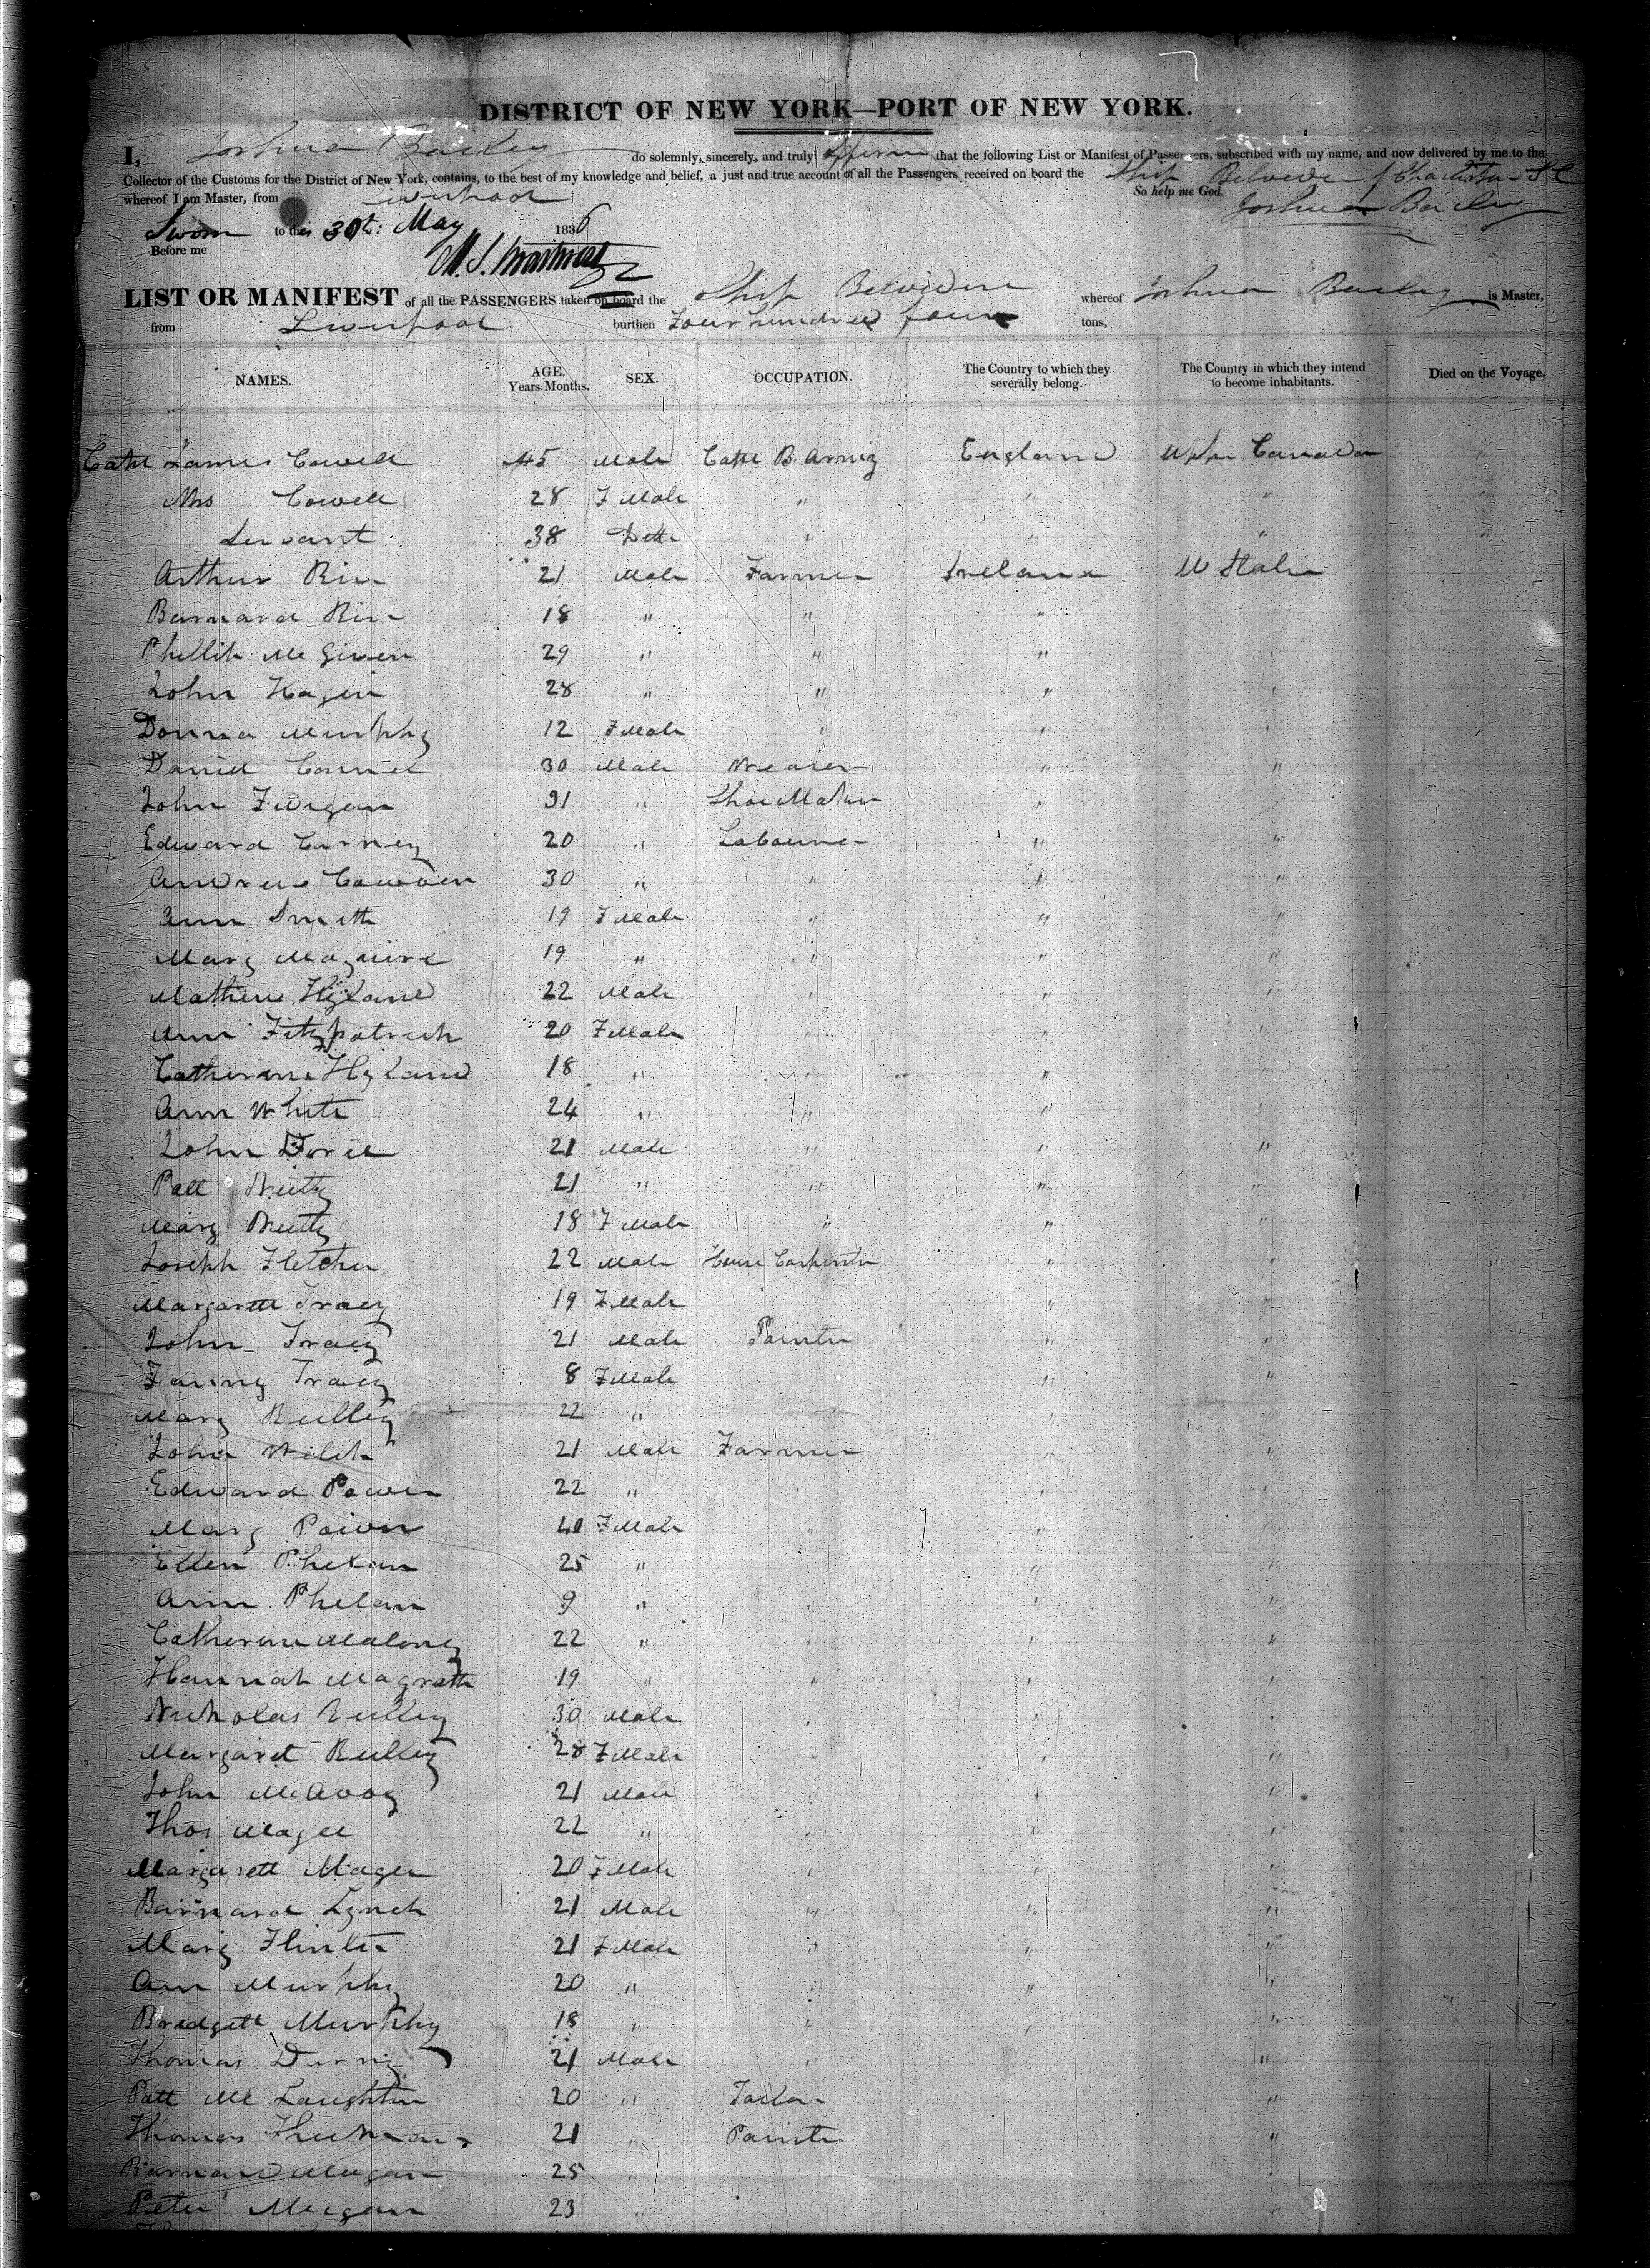 DISTRICT OF NEW YORK—PORT OF NEW YORK.
I, Joshua Bailey do solemnly, sincerely, and truly affirm that the following List or Manifest of Passengers, subscribed with my name, and now delivered by me to the
Collector of the Customs for the District of New York, contains, to the best of my knowledge and belief, a just and true account of all the Passengers received on board the Ship Belvidere of Charleston S C
whereof I am Master, from Liverpool So help me God.
Joshua Bailey
Sworn to this 30th: May 1836
Before me
LIST OR MANIFEST of all the PASSENGERS taken on board the Ship Belvidere whereof Joshua Bailey is Master,
from Liverpool burthen Four hundred four tons,
NAMES. AGE. Years. Months. SEX. OCCUPATION. The Country to which they severally belong. The Country in which they intend to become inhabitants. Died on the Voyage.
James Cowell 45 Male England Upper Canada
Mrs Cowell 28 F Male " " "
Servant 38 Ditto " " " "
Arthur 21 Male Farmer Ireland U States
Barnard 18 " " "
Phillip Mc Given 29 " " "
John Hagin 28 " " "
Donna Murphy 12 F Male " "
Daniel 30 Male Weaver " "
John 31 " Shoe Maker "
Edward Carney 20 " Labourer " "
Andrew Cowden 30 " " " "
Ann Smith 19 F Male " " "
Mary Maguire 19 " " " "
Mathew Hyland 22 Male " " "
Ann Fitzpatrick 20 F Male " "
Catherine Hyland 18 " " "
Ann White 24 " " "
John 21 Male " " "
Patt 21 " " " "
Mary 18 F Male " " "
Joseph Fletcher 22 Male House Carpenter " "
Margarett Tracy 19 F Male " "
John Tracy 21 Male Painter " "
Fanny Tracy 8 F Male " "
Mary Reilley 22 " " "
John Welch 21 Male Farmer " "
Edward Power 22 " " "
Mary Power 40 F Male " "
Ellen Phelan 25 " " "
Ann Phelan 9 " " "
Catherine Maloney 22 " " "
Hannah Magrath 19 " " " "
Nicholas Reilley 30 Male " "
Margaret Reilley 28 F Male " "
John McAvoy 21 Male " "
Thos Magee 22 " " "
Margarett Magee 20 F Male " "
Barnard Lynch 21 Male " " "
Mary 21 F Male " " "
Ann Murphy 20 " " " "
Bridgett Murphy 18 " " " "
Thomas 21 Male " "
Patt Mc Laughlin 20 " Tailor "
Thomas 21 Painter "
Barnard 25
Peter Meegan 23